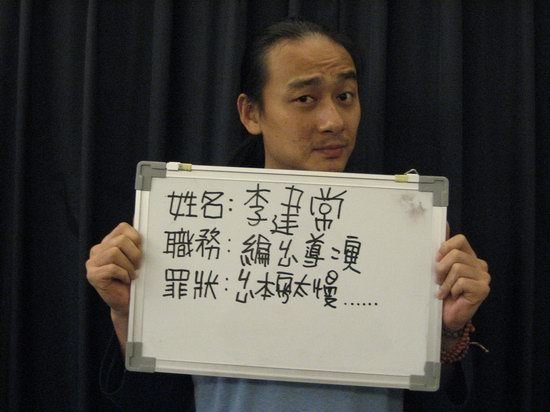 姓名:李建常
職務:編出導演
罪狀:出本太慢......